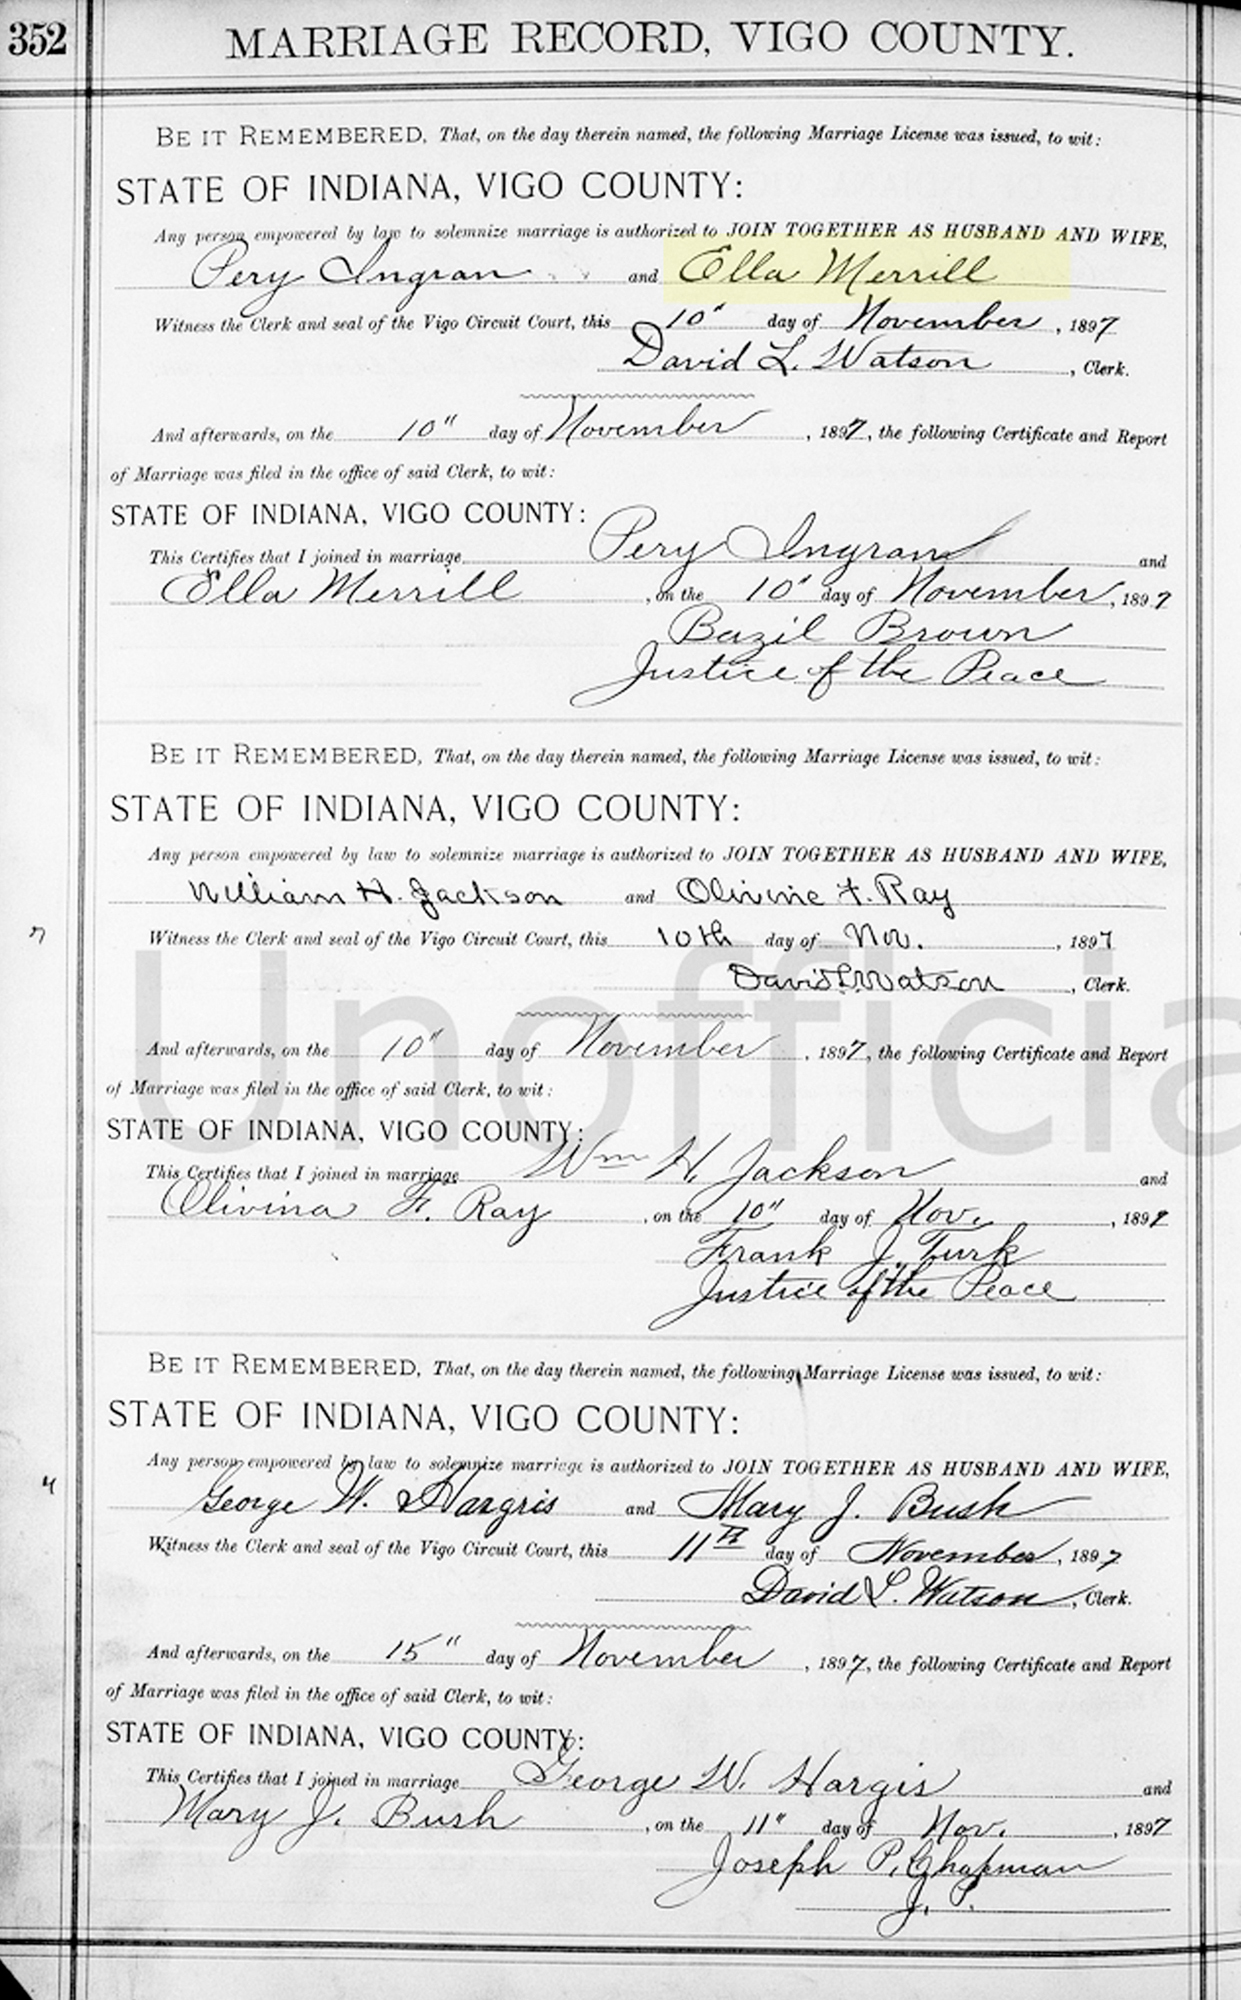 352
MARRIAGE RECORD, VIGO COUNTY.
BE IT REMEMBERED, That, on the day therein named, the following Marriage License was issued, to wit:
STATE OF INDIANA, VIGO COUNTY:
Any person empowered by law to solemnize marriage is authorized to JOIN TOGETHER AS HUSBAND AND WIFE,
Pery Ingran and Ella Merrill
Witness the Clerk and seal of the Vigo Circuit Court, this 10" day of November, 1897
David L. Watson, Clerk.
And afterwards, on the 10" day of November, 1897, the following Certificate and Report
of Marriage was filed in the office of said Clerk, to wit:
STATE OF INDIANA, VIGO COUNTY:
This Certifies that I joined in marriage Pery Ingran and
Ella Merrill, on the 10" day of November, 1897
Bazil Brown
Justice of the Peace
BE IT REMEMBERED, That, on the day therein named, the following Marriage License was issued, to wit:
STATE OF INDIANA, VIGO COUNTY:
Any person empowered by law to solemnize marriage is authorized to JOIN TOGETHER AS HUSBAND AND WIFE,
William H. Jackson and Olivine F. Ray
Witness the Clerk and seal of the Vigo Circuit Court, this 10th day of Nov., 1897
David L. Watson, Clerk.
And afterwards, on the 10" day of November, 1897, the following Certificate and Report
of Marriage was filed in the office of said Clerk, to wit:
Unofficia
STATE OF INDIANA, VIGO COUNTY:
This Certifies that I joined in marriage Wm H. Jackson and
Olivina F. Ray, on the 10" day of Nov., 1897
Frank J. Turk
Justice of the Peace
BE IT REMEMBERED, That, on the day therein named, the following Marriage License was issued, to wit:
STATE OF INDIANA, VIGO COUNTY:
Any person empowered by law to solemnize marriage is authorized to JOIN TOGETHER AS HUSBAND AND WIFE,
George W. Hargris and Mary J. Bush
Witness the Clerk and seal of the Vigo Circuit Court, this 11th day of November, 1897
David L. Watson, Clerk.
And afterwards, on the 15" day of November, 1897, the following Certificate and Report
of Marriage was filed in the office of said Clerk, to wit:
STATE OF INDIANA, VIGO COUNTY:
This Certifies that I joined in marriage George W. Hargis and
Mary J. Bush, on the 11" day of Nov., 1897
Joseph P. Chapman
J. P.